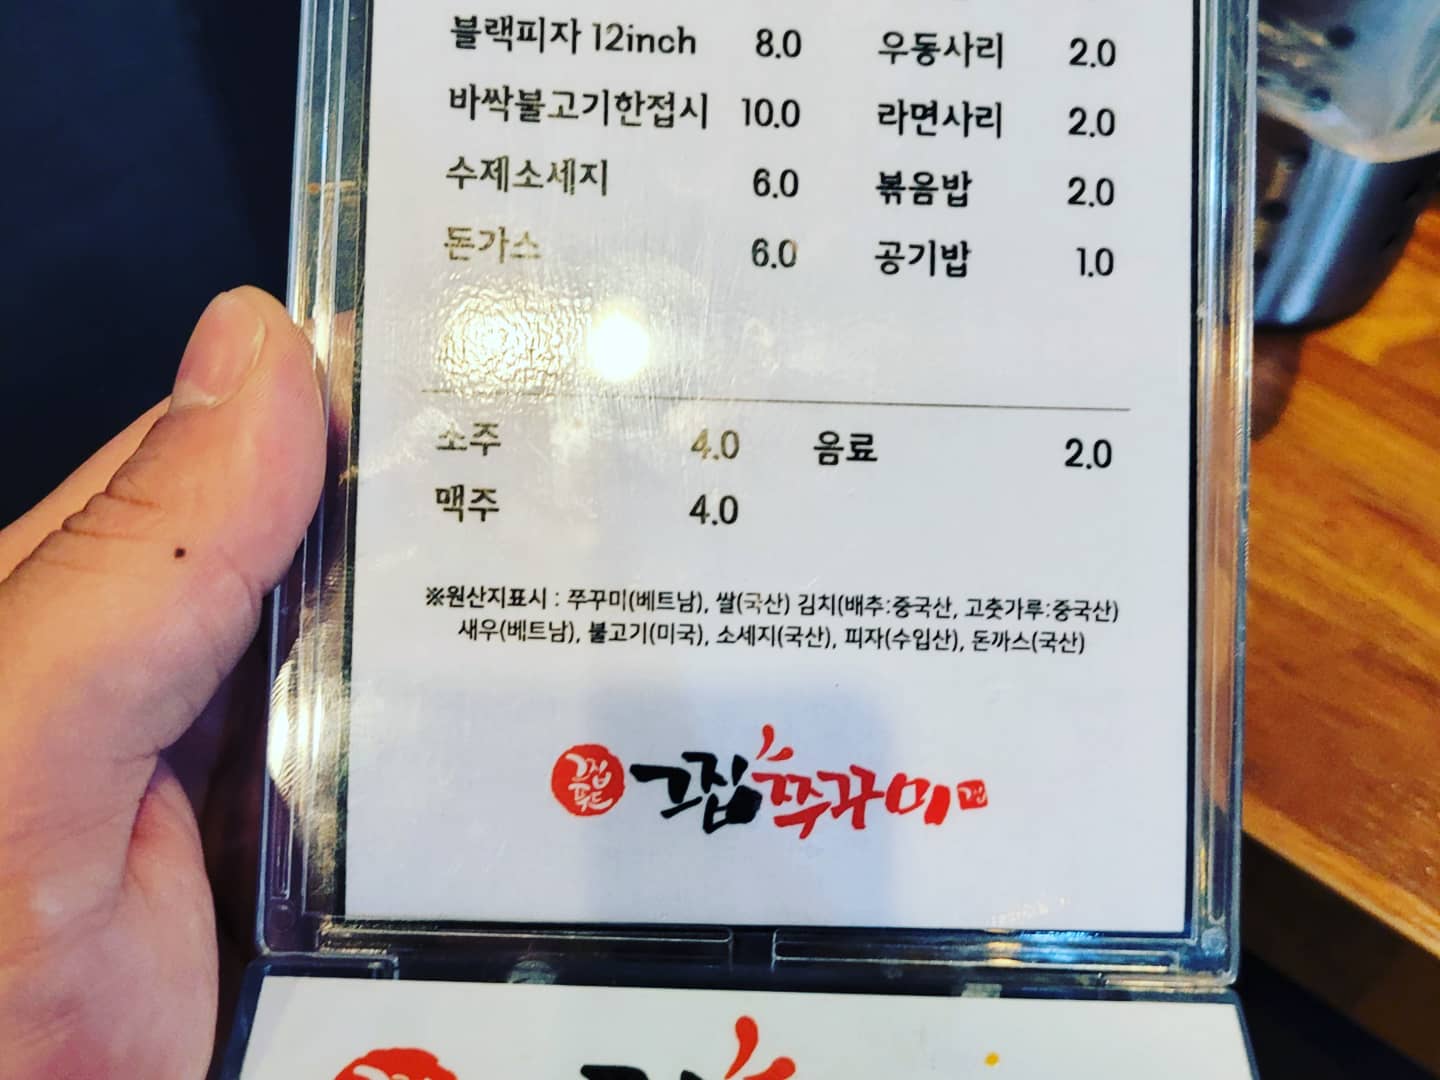 블랙피자 12inch 8.0 우동사리 2.0
바싹불고기한접시 10.0 라면사리 2.0
수제소세지 6.0 볶음밥 2.0
돈가스 6.0 공기밥 1.0
소주 4.0 음료 2.0
맥주 4.0
※원산지표시 : 쭈꾸미(베트남), 쌀(국산) 김치(배추:중국산, 고춧가루:중국산)
새우(베트남), 불고기(미국), 소세지(국산), 피자(수입산), 돈까스(국산)
그집푸드 그집쭈꾸미